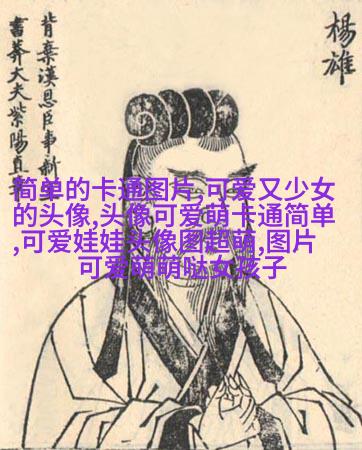 楊雄
背棄漢恩臣事新
書莽大夫紫陽直
简单的卡通图片,可爱又少女
的头像,头像可爱萌卡通简单
,可爱娃娃头像图超萌,图片
可爱萌萌哒女孩子